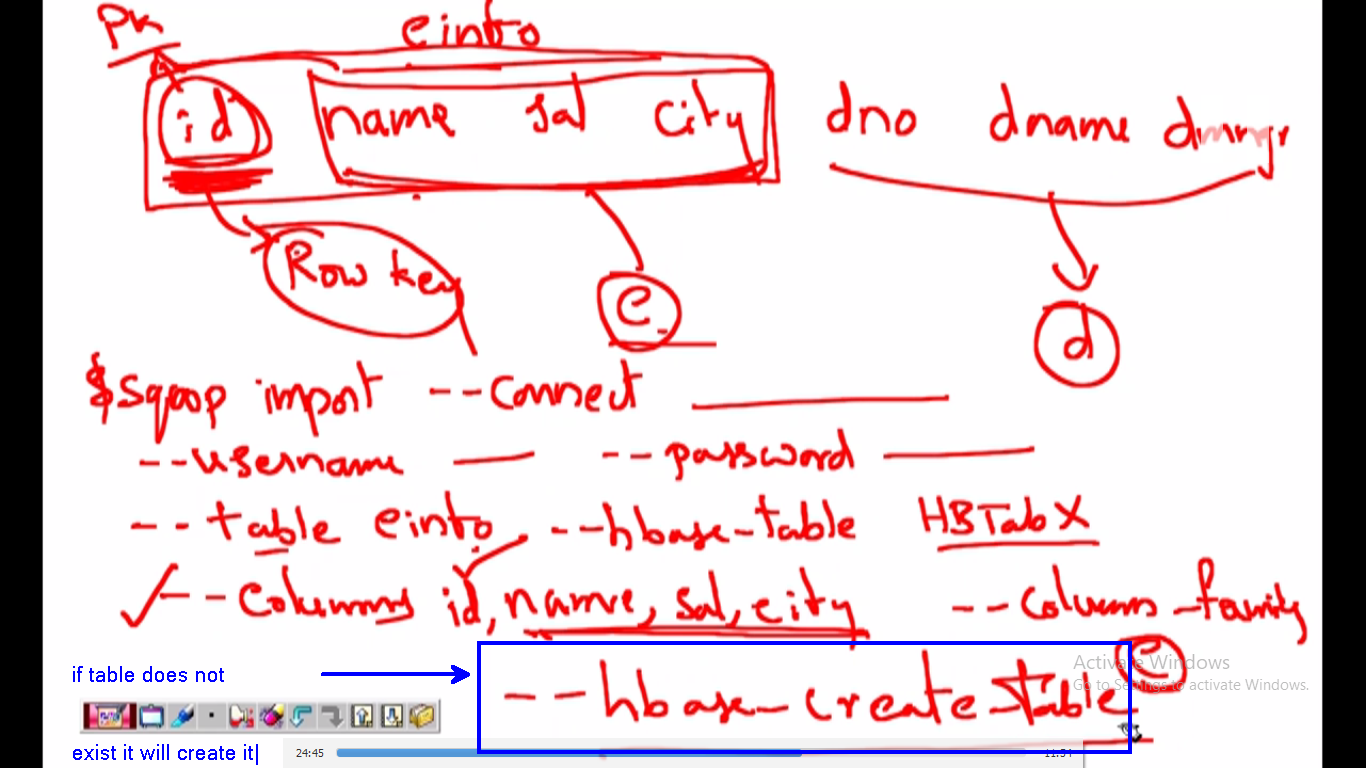 PK
einfo
id name sal city dno dname dmngr
Row key
e
d
$sqoop import --connect
--username --password
--table einfo --hbase-table HBTabX
--columns id, name, sal, city --column-family
e
if table does not
--hbase-create-table
Activate Windows
Go to Settings to activate Windows.
exist it will create it
24:45
11:54